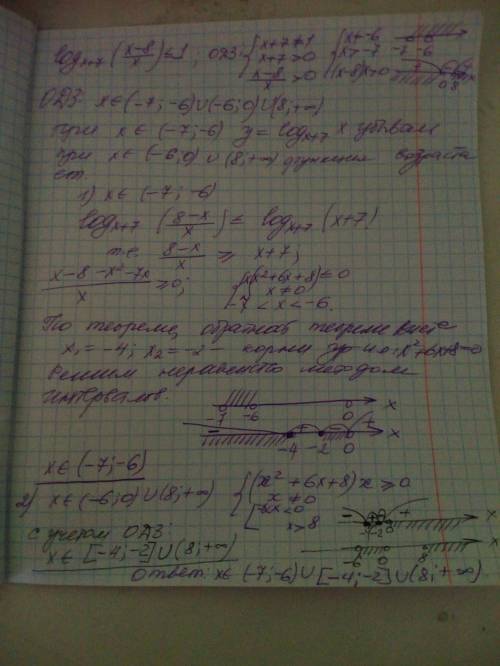 log_{x+7} (x-8/x) ≤ 1; ОДЗ: { x+7≠1 x+7>0 x-8/x >0 { x≠-6 x>-7 (x-8)x>0 -7 -6 0 8
ОДЗ: x∈(-7;-6)∪(-6;0)∪(8;+∞)
при x∈(-7;-6) y=log_{x+7} x убывает
при x∈(-6;0)∪(8;+∞) функция возраста
ет.
1) x∈(-7;-6)
log_{x+7} (8-x/x) ≤ log_{x+7} (x+7)
т.е. 8-x/x ≥ x+7;
x-8-x²-7x/x ≥0; { x(x²+6x+8)≤0 x≠0 -7<x<-6.
По теореме, обратной теореме Виета
x₁=-4; x₂=-2 корни ур-ия: x²+6x+8=0
Решим неравенство методом
интервалов.
-7 -6 0 x
- + - + -4 -2 0 x
x∈(-7;-6)
2) x∈(-6;0)∪(8;+∞) { (x²+6x+8)x ≥0 x≠0 [ -6<x<0 x>8
- + + -4 -2 0 x
с учетом ОДЗ:
x∈[-4;-2]∪(8;+∞) -6 0 8 x
Ответ: x∈(-7;-6)∪[-4;-2]∪(8;+∞)